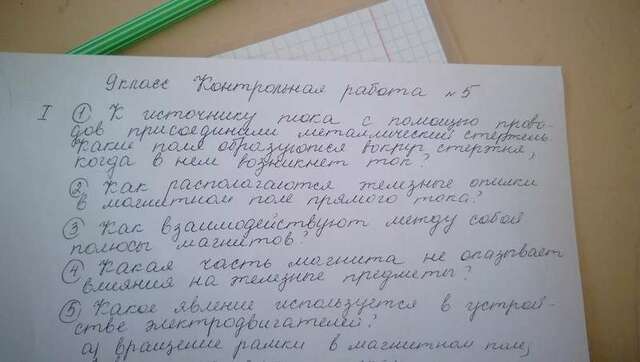 9класс Контрольная работа №5
I ① К источнику тока с помощью прово-
дов присоединили металлический стержень.
Какие поля образуются вокруг стержня,
когда в нем возникнет ток?
② Как располагаются железные опилки
в магнитном поле прямого тока?
③ Как взаимодействуют между собой
полюсы магнитов?
④ Какая часть магнита не оказывает
влияния на железные предметы?
⑤ Какое явление используется в устрой-
стве электродвигателей?
а) вращение рамки в магнитном поле,